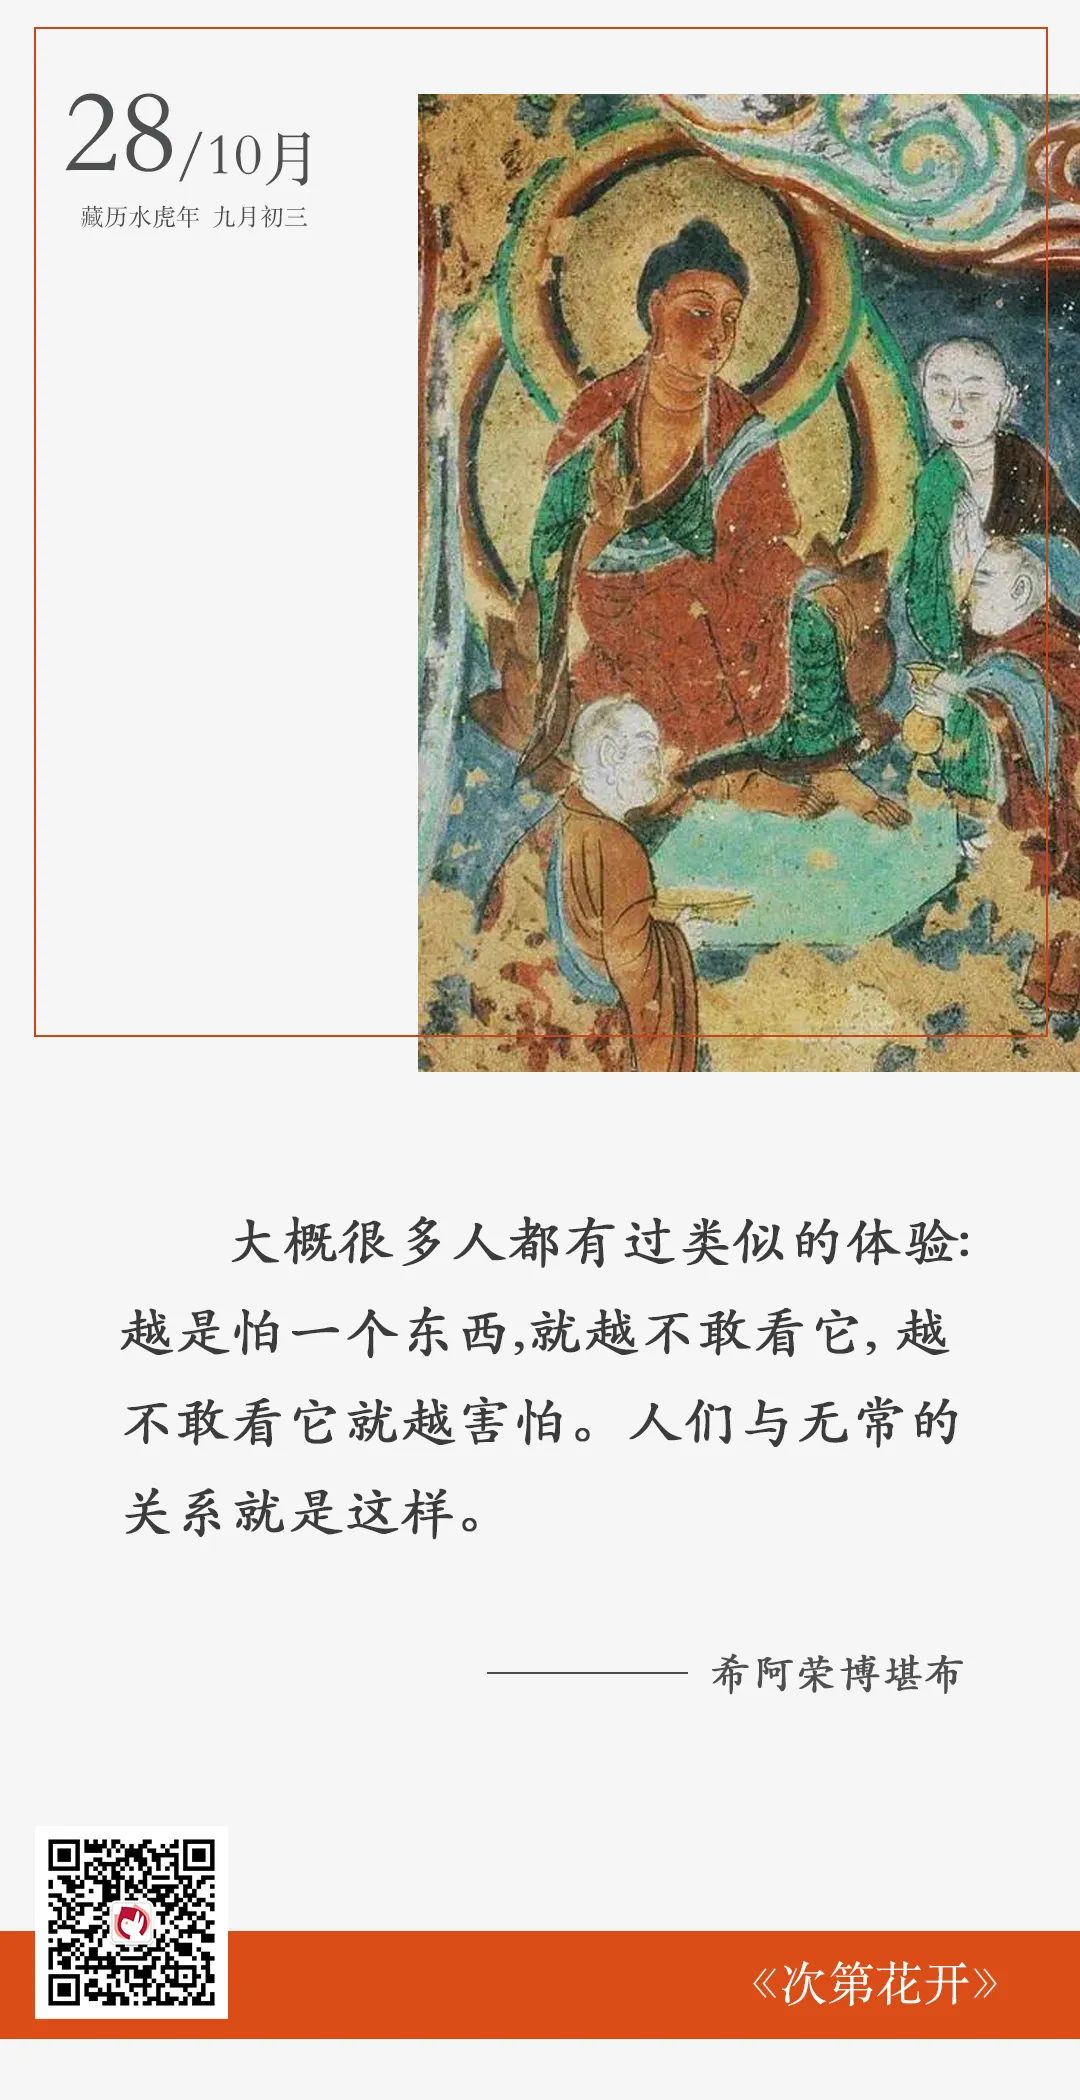 28/10月
藏历水虎年 九月初三
大概很多人都有过类似的体验:
越是怕一个东西,就越不敢看它, 越
不敢看它就越害怕。人们与无常的
关系就是这样。
——— 希阿荣博堪布
《次第花开》